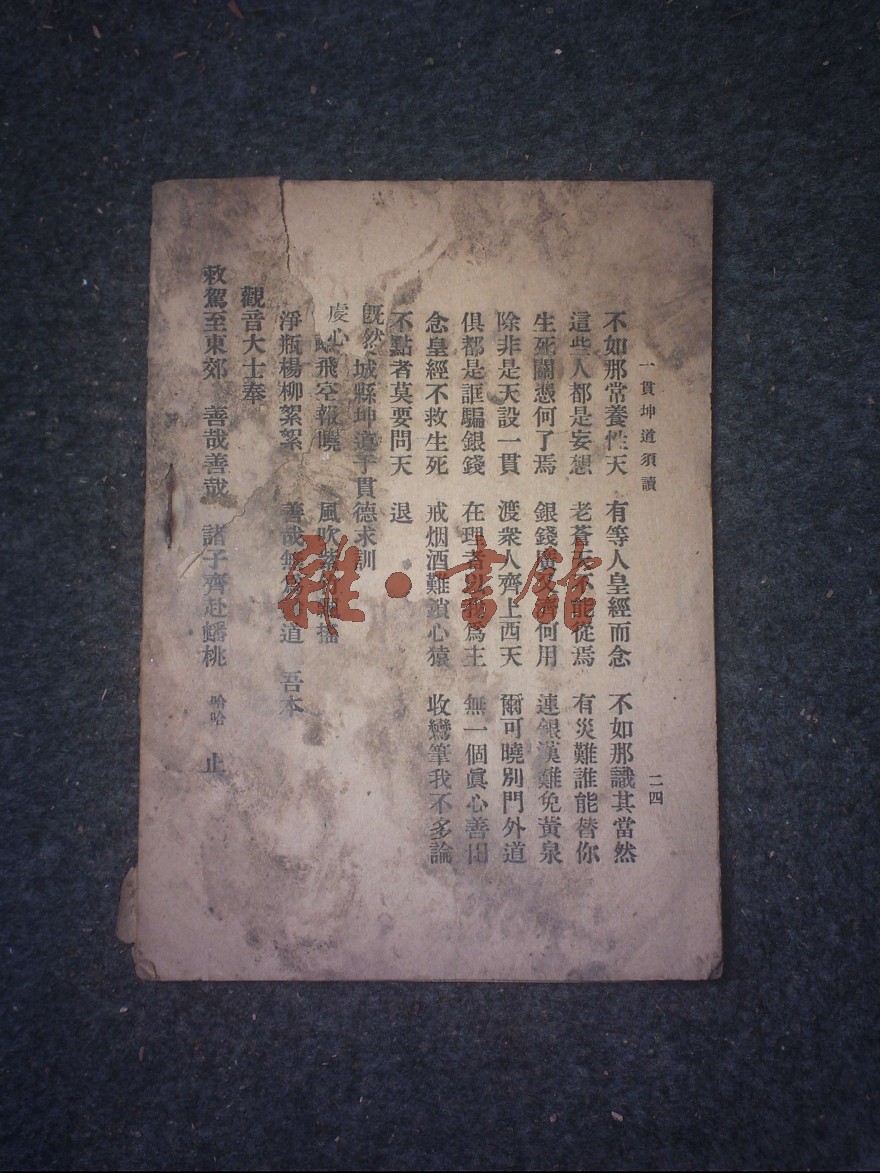 一貫坤道須讀 二四
不如那常養性天 有等人皇經而念 不如那識其當然
這些人都是妄想 老蒼天不能從焉 有災難誰能替你
生死關憑何了焉 銀錢廣又濟何用 連銀漢難免黃泉
除非是天設一貫 渡衆人齊上西天 爾可曉別門外道
俱都是誆騙銀錢 在理者以為主 無一個眞心善田
念皇經不救生死 戒烟酒難鎖心猿 收鸞筆我不多論
不點者莫要問天 退
旣然城縣坤道于貫德求訓
慶心飛空報曉 風吹播
淨瓶楊柳絮絮 善哉無為道 吾本
觀音大士奉
敕駕至東郊 善哉善哉 諸子齊赴蟠桃 哈哈 止
雜·書館